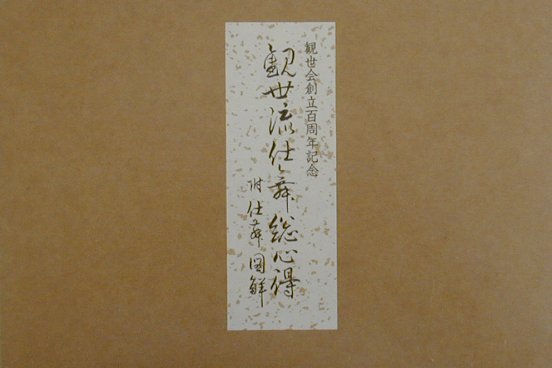 観世会創立百周年記念
観世流仕舞総心得
附仕舞図解